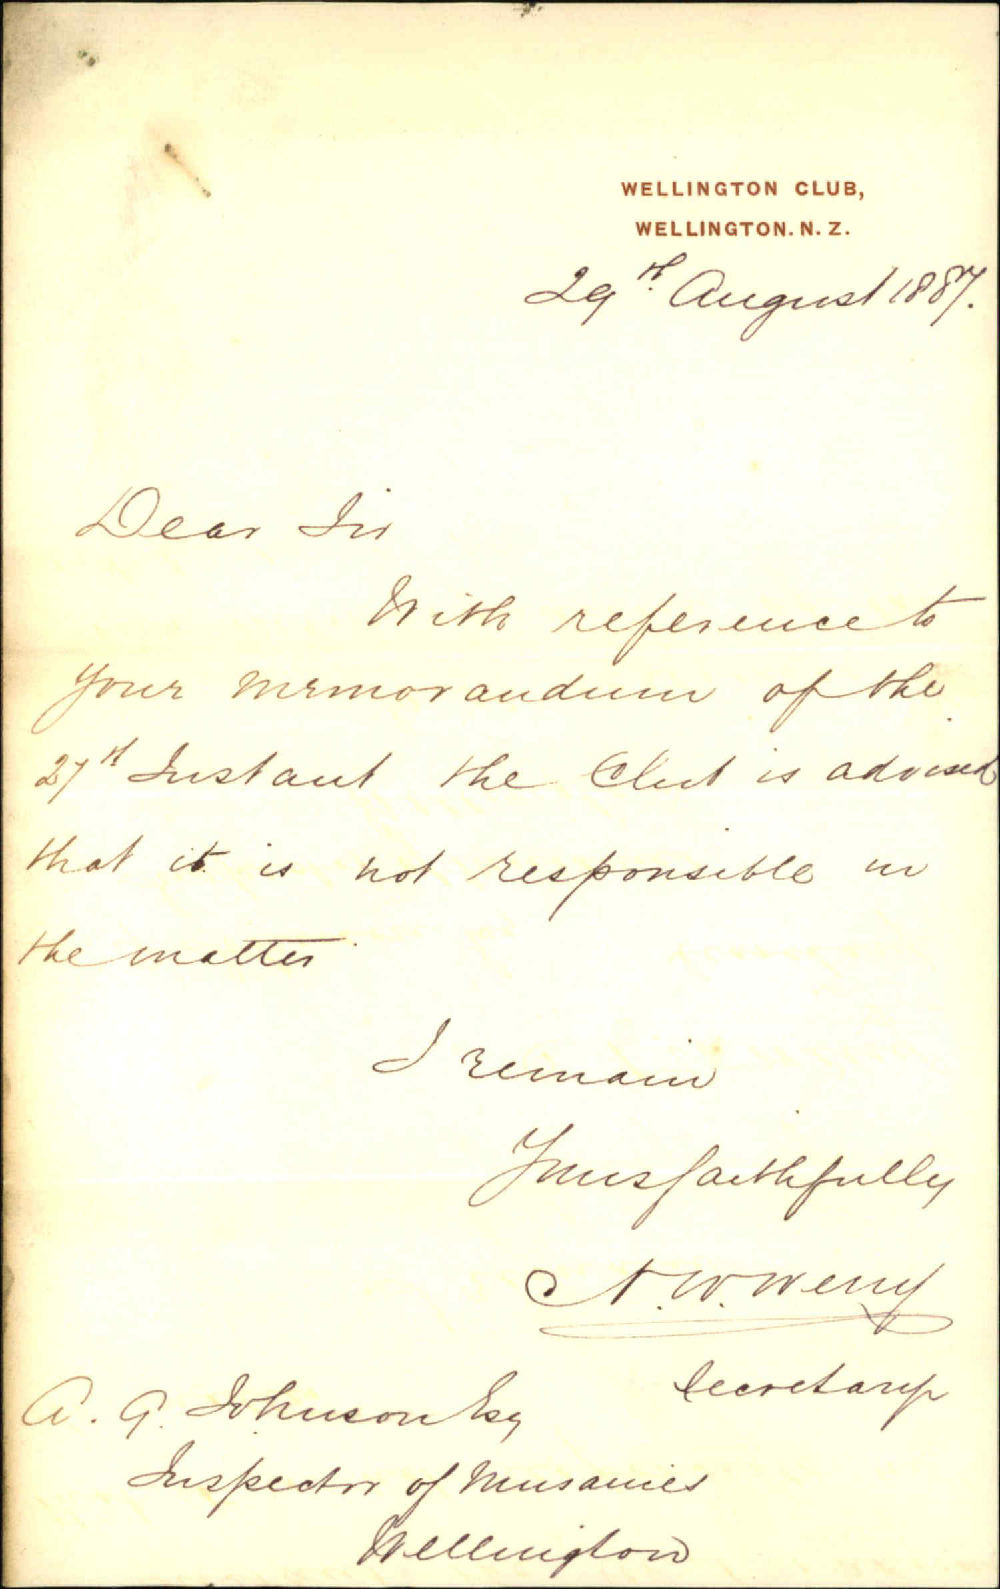 WELLINGTON CLUB,
WELLINGTON. N. Z.
29th. August 1887.
Dear Sir
With reference to
your memorandum of the
27th Instant the Club is advised
that it is not responsible in
the matter
I remain
Yours faithfully
W.
Secretary
A. G. Johnson Esq
Inspector of Nusances
Wellington